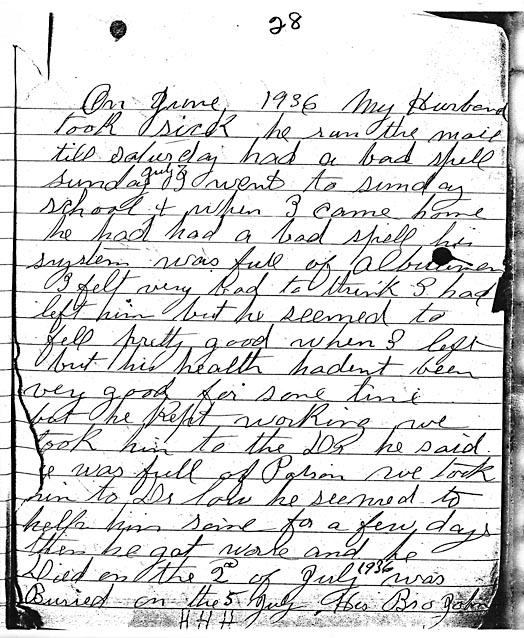 28
On June, 1936 My Husband
took sick he run the mail
till saturday had a bad spell
sunday I went to sunday
school & when I came home
he had had a bad spell his
system was full of Albuumen
I felt very bad to think I had
left him but he seemed to
fell pretty good when I left
but his health hadent been
very good for some time
but he kept working we
took him to the DR he said.
he was full of Poison we took
him to Dr Low he seemed to
help him some for a few days
then he got worse and he
Died on the 2nd of July 1936 was
Buried on the 5 July. His Bro John
H H H